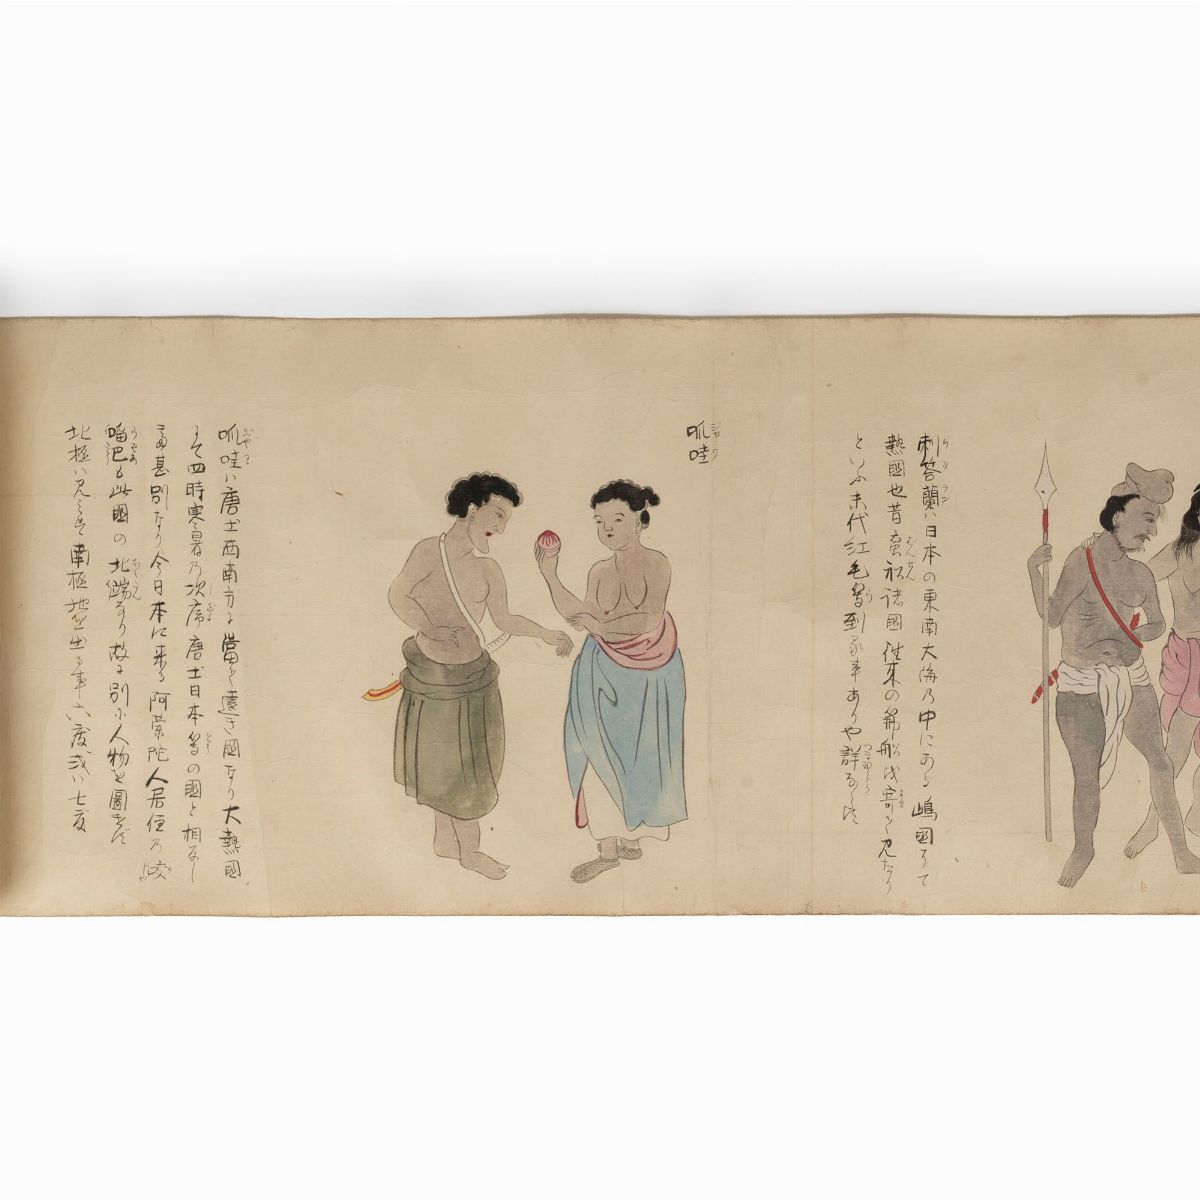 刺答蘭ハ日本の東南大海乃中にある嶋國にて
熱國也昔蛮船諸國往来の節船を寄て見たり
といふ末代紅毛等到る事ありや詳ならす
呱哇
ジヤワ
呱哇ハ唐土西南方に當て遠き國なり大熱國
にて四時寒暑乃次序唐土日本等の國と相反し
甚別なり今日本に来る阿蘭陀人居住乃
𠺕𠮨巴も此國の北端なり故に別に人物を圖せす
北極ハ見えす南極地を出る事六度或ハ七度